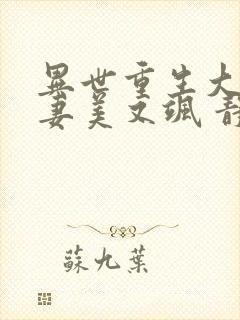 異世重生大
妻美又颯 青
蘇九葉